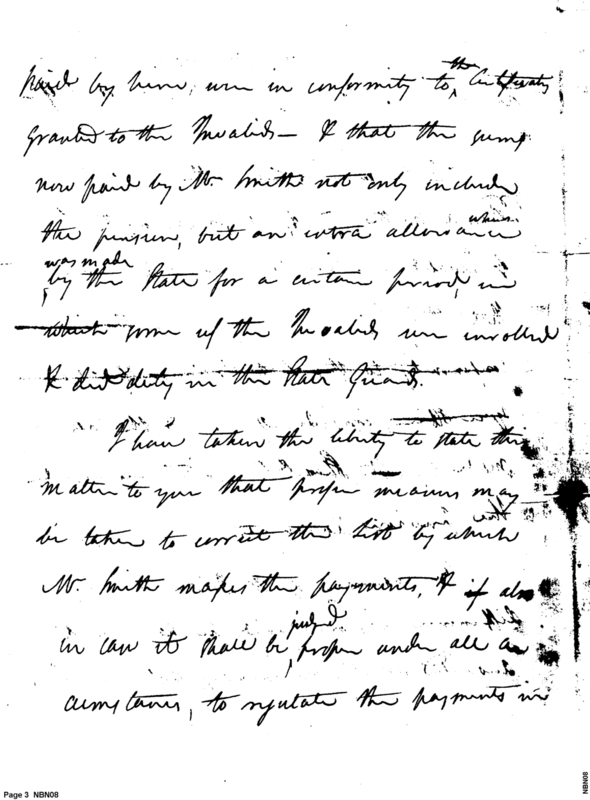 paid by him, were in conformity to the Certificates
granted to the Invalids — & that the sums
now paid by Mr. Smith not only include
the pension, but an extra allowance which
was made
by the State for a certain period, in
which some of the Invalids were enrolled
& did duty in the State Guards.
I have taken the liberty to state this
matter to you that proper means may
be taken to correct the List by which
Mr. Smith makes the payments, & if also
in case it shall be judged proper under all
cumstances, to regulate the payments in
Page 3 NBN08
NBN08